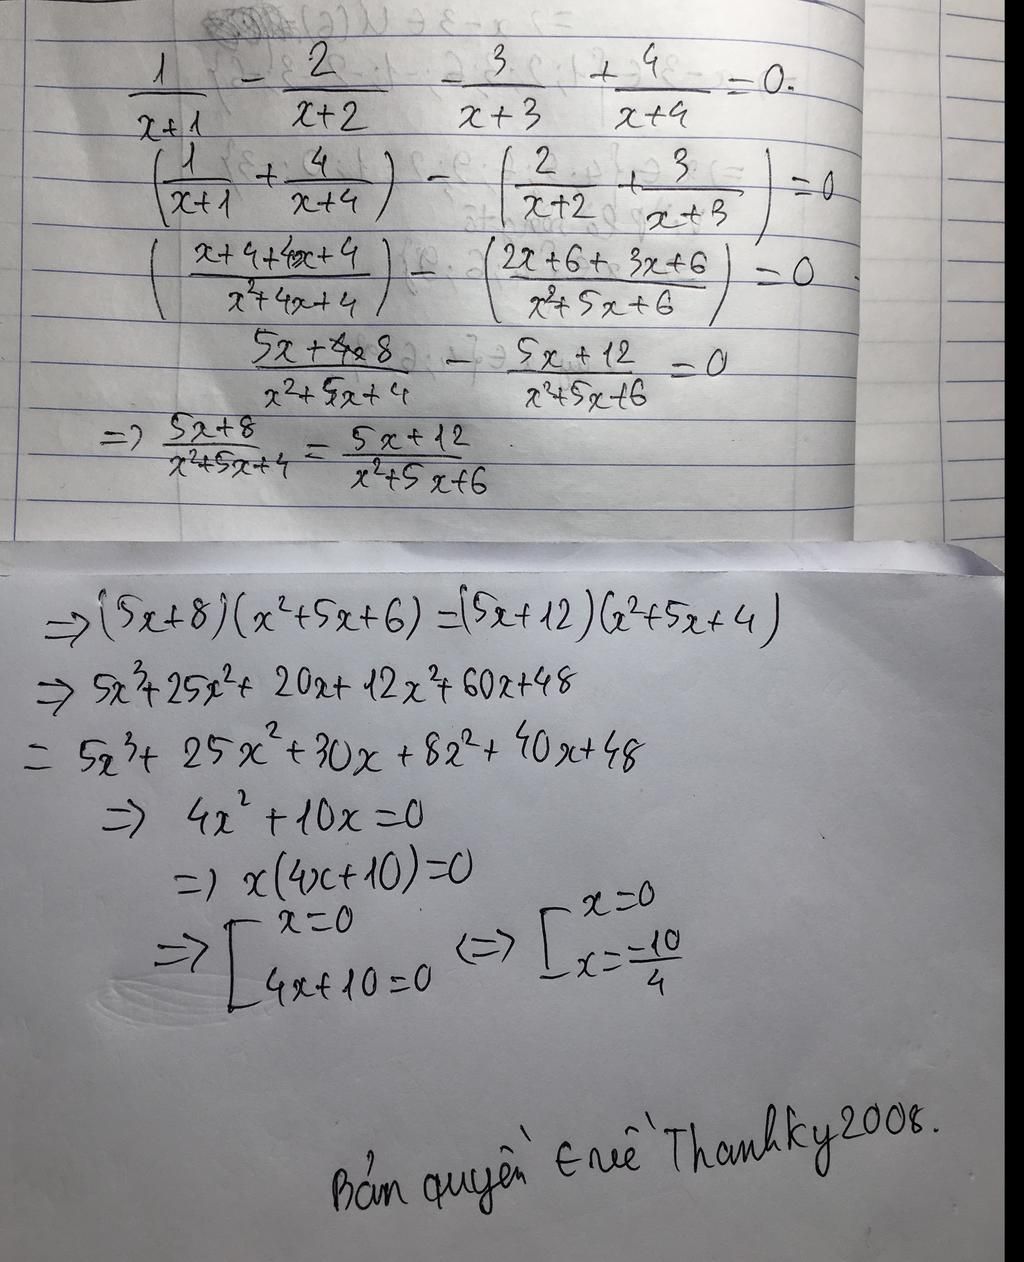 1/(x+1) - 2/(x+2) - 3/(x+3) + 4/(x+4) = 0.
(1/(x+1) + 4/(x+4)) - (2/(x+2) + 3/(x+3)) = 0
((x+4+4x+4)/(x²+4x+4)) - ((2x+6+3x+6)/(x²+5x+6)) = 0
(5x+8)/(x²+5x+4) - (5x+12)/(x²+5x+6) = 0
=> (5x+8)/(x²+5x+4) = (5x+12)/(x²+5x+6)
=> (5x+8)(x²+5x+6) = (5x+12)(x²+5x+4)
=> 5x³+25x²+20x+12x²+60x+48
= 5x³+25x²+30x+8x²+40x+48
=> 4x²+10x=0
=> x(4x+10)=0
=> [ x=0 <=> [ x=0
4x+10=0 x=-10/4
Bản quyền Thanhky2008.